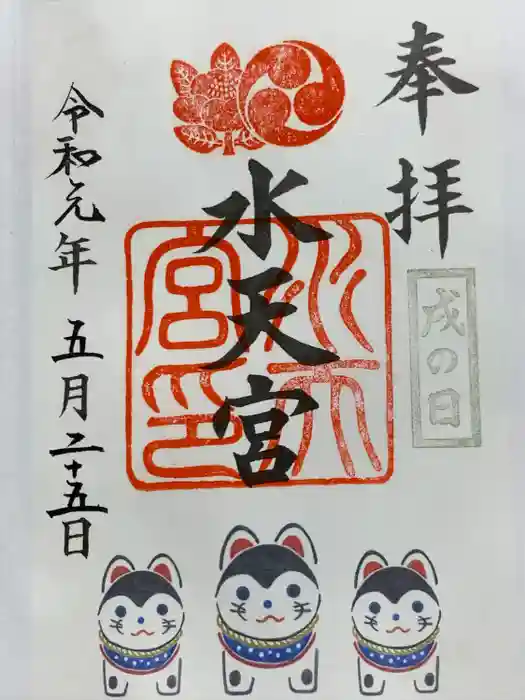 奉拝
戌の日
水天宮
水天宮印
令和元年五月二十五日